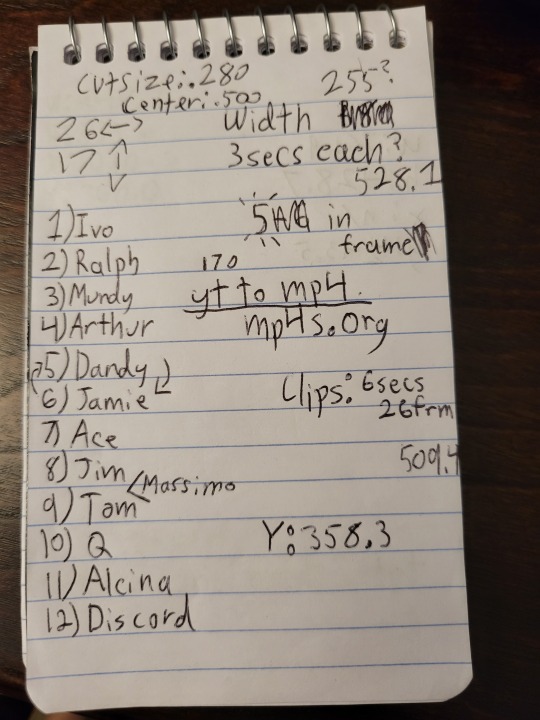 cutsize: 280
255?
center: 500
26<->
Width
17
3secs each?
528.1
1) Ivo
in
frame
2) Ralph
170
3) Mundy
yt to mp4.
4) Arthur
mp4s.org
5) Dandy
6) Jamie
Clips: 6secs
26frm
7) Ace
8) Jim
509.4
<Massimo
9) Tom
10) Q
Y: 358.3
11) Alcina
12) Discord